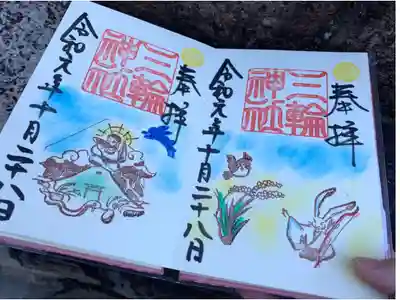 奉拝
三輪
神社
令和元年十月二十八日
奉拝
三輪
神社
令和元年十月二十八日